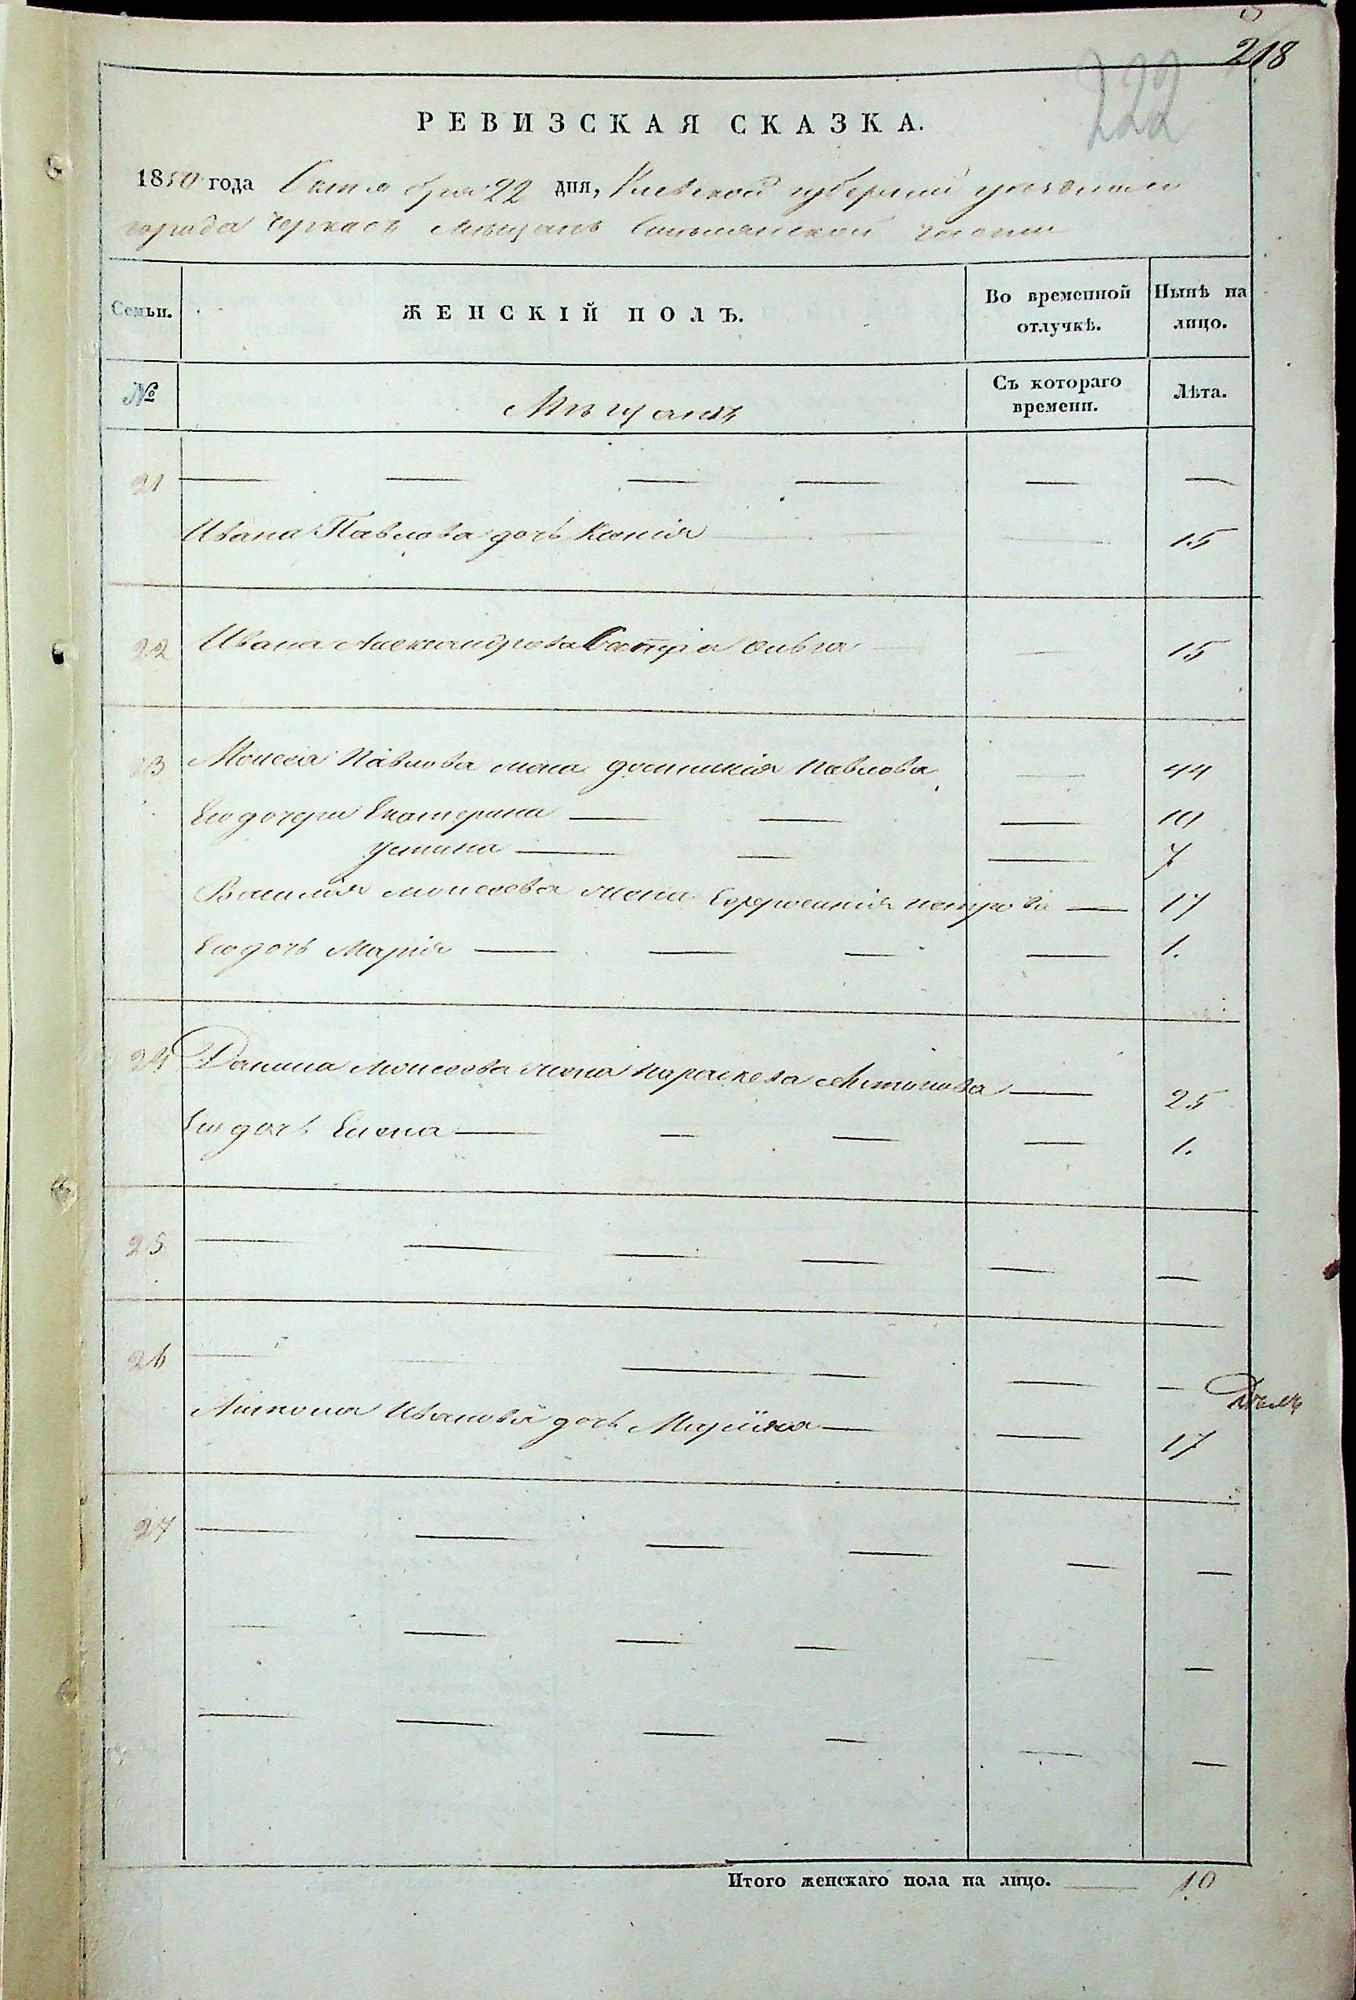 218
222
РЕВИЗСКАЯ СКАЗКА.
1850 года Октября 22 дня, Киевской губернии уезднаго
города Черкасъ Мѣщанъ части
Семьи. ЖЕНСКІЙ ПОЛЪ. Во временной отлучкѣ. Нынѣ на лицо.
№ Мѣщанъ Съ котораго времени. Лѣта.
21 — — — — — —
Ивана Павлова дочь Ксенія — — — 15
22 Ивана Александрова Сестра Ольга — — 15
23 Моисея Павлова жена Павлова — 44
Его дочери Екатерина — — — 10
Устина — — — 7
Василія Моисеева жена Ефросинія Петрова — 17
Его дочь Марія — — — — 1.
24 Данила Моисеева жена Параскева Антонова — 25
Его дочь Елена — — — — 1.
25 — — — — — —
26 — — — — — —
Антона Иванова дочь Марина — — 17
27 — — — — — —
— — — — — —
— — — — — —
Итого женскаго пола на лицо. — 10